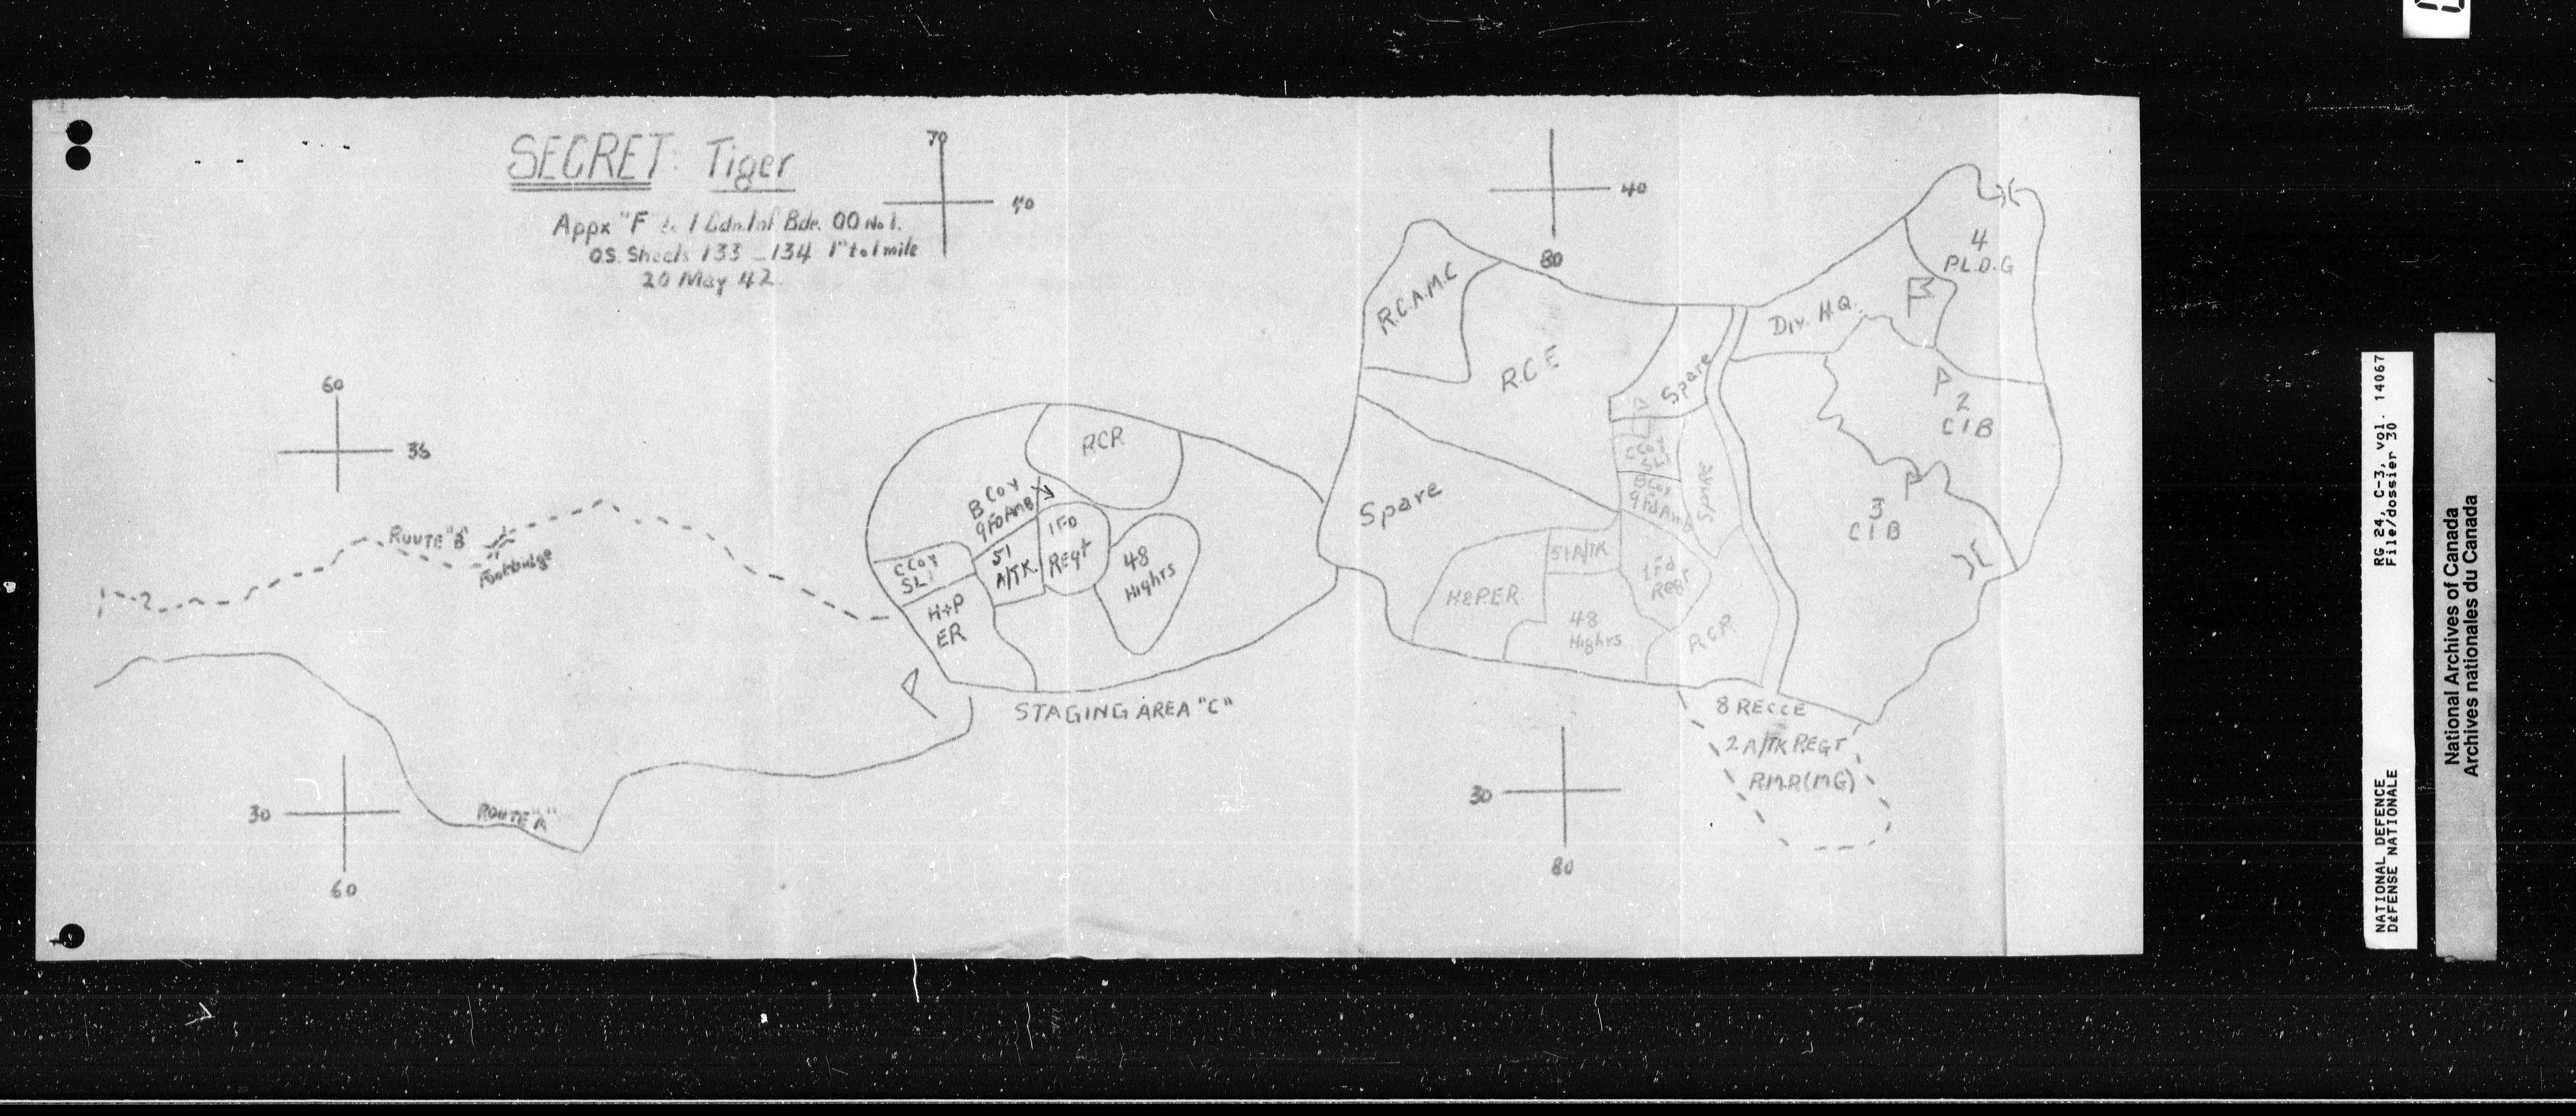 SECRET: Tiger
Appx "F" to 1 Cdn. Inf Bde. OO No 1.
O.S. Sheets 133 - 134 1" to 1 mile
20 May 42.
70
40
40
80
60
35
30
60
30
80
ROUTE "B"
Footbridge
ROUTE "A"
RCR
B Coy
9 FD AMB
1 FD
Regt
51
A/TK.
48
Highrs
C Coy
SLI
H+P
ER
STAGING AREA "C"
R.C.A.M.C
R.C.E
Spare
Spare
C Coy
SLI
B Coy
9 Fd Amb
SPARE
51 A/TK
H&P.E.R.
1 Fd
Regt
48
Highrs
RCR
Div. H.Q.
4
P.L.D.G
2
C I B
3
C I B
8 RECCE
2 A/TK REGT
R.M.R (MG)
RG 24, C-3, vol. 14067
File/dossier 30
NATIONAL DEFENCE
DÉFENSE NATIONALE
National Archives of Canada
Archives nationales du Canada